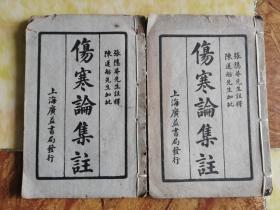 張隱菴先生註釋
陳蓮舫先生加批
傷寒論集註
上海廣益書局發行
張隱菴先生註釋
陳蓮舫先生加批
傷寒論集註
上海廣益書局發行